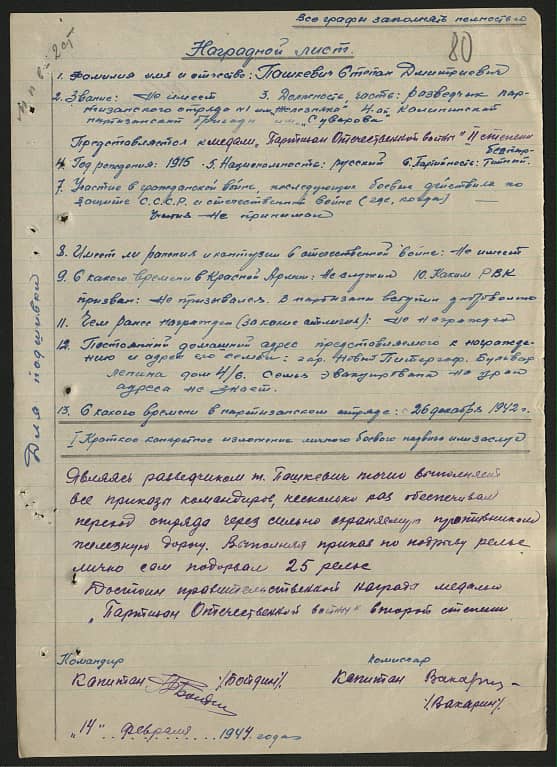 Все графы заполнять полностью
80
Наградной лист.
1. Фамилия имя и отчество: Пашкевич Степан Дмитриевич
2. Звание: Не имеет 3. Должность часть: разведчик пар-
тизанского отряда №1 им. Железняка 4-ой Калининской
партизанской бригады им. "Суворова"
Представляется к медали "Партизан Отечественной войны" II степени
4. Год рождения: 1915 5. Национальность: русский 6. Партийность: беспар-
тийный.
7. Участие в гражданской войне, последующих боевых действиях по
защите С.С.С.Р. и отечественной войне (где, когда) —
Участия не принимал
8. Имеет ли ранения и контузии в отечественной войне: Не имеет
9. С какого времени в Красной Армии: Не служил 10. Каким РВК
призван: Не призывался. В партизаны вступил добровольно
11. Чем ранее награжден (за какие отличия): Не награжден
12. Постоянный домашний адрес представляемого к награжде-
нию и адрес его семьи: гор. Новый Питергоф. Бульвар
Ленина дом 4/6. Семья эвакуирована на урал
адреса не знает.
13. С какого времени в партизанском отряде: с 26 декабря 1942 г.
I Краткое конкретное изложение личного боевого подвига или заслуг
Являясь разведчиком т. Пашкевич точно выполняет
все приказы командиров, несколько раз обеспечивал
переход отряда через сильно охраняемую противником
железную дорогу. Выполняя приказ по подрыву рельс
лично сам подорвал 25 рельс
Достоин правительственной награды медали
"Партизан Отечественной войны" второй степени
Командир Комиссар
Капитан /Бойдин/. Капитан Вакарин
/Вакарин/.
"14" февраля 1944 года
Для подшивки